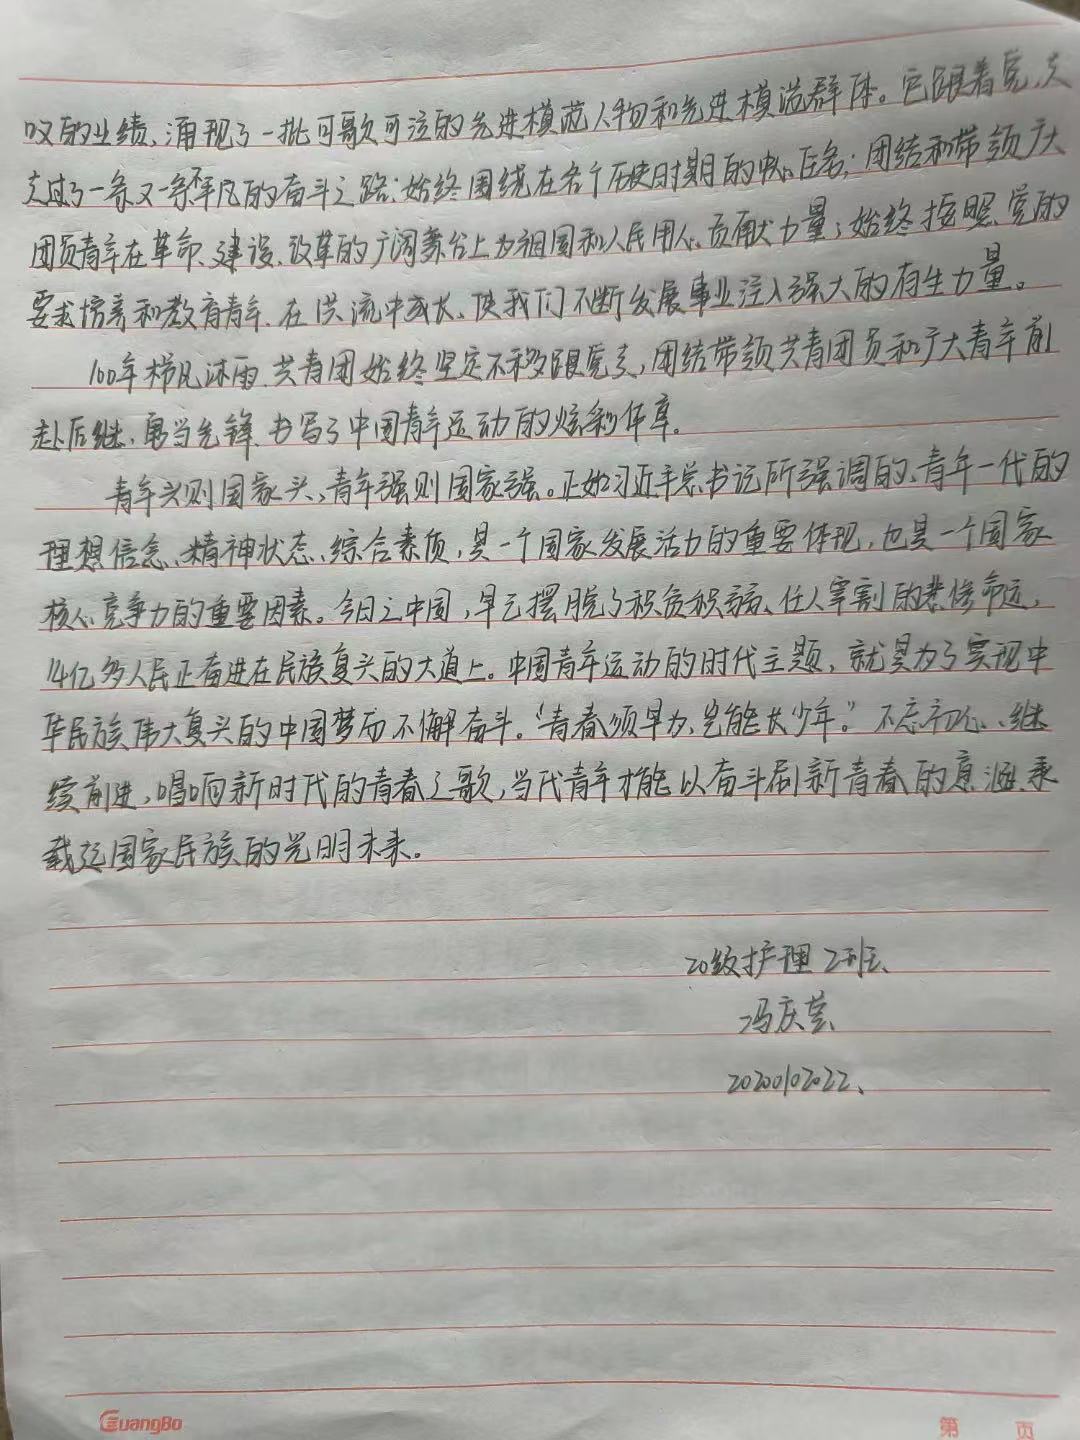 叹的业绩、涌现了一批可歌可泣的先进模范人物和先进模范群体。它跟着党,走
走过了一条又一条不平凡的奋斗之路;始终围绕在各个历史时期的中心任务;团结和带领广大
团员青年在革命、建设、改革的广阔舞台上为祖国和人民用心贡献力量;始终按照党的
要求培养和教育青年、在洪流中成长、使我们不断发展事业注入强大的有生力量。
100年栉风沐雨、共青团始终坚定不移跟党走,团结带领共青团员和广大青年前
赴后继、勇当先锋、书写了中国青年运动的炫彩华章。
青年兴则国家兴、青年强则国家强。正如习近平总书记所强调的、青年一代的
理想信念、精神状态、综合素质,是一个国家发展活力的重要体现,也是一个国家
核心竞争力的重要因素。今日之中国,早已摆脱了积贫积弱、任人宰割的悲惨命运,
14亿多人民正奋进在民族复兴的大道上。中国青年运动的时代主题,就是为了实现中
华民族伟大复兴的中国梦而不懈奋斗。“青春须早为,岂能长少年。”不忘初心、继
续前进,唱响新时代的青春之歌,当代青年才能以奋斗刷新青春的意涵、承
载起国家民族的光明未来。
20级护理2班、
冯庆芸、
20200102022、
GuangBo
第 页